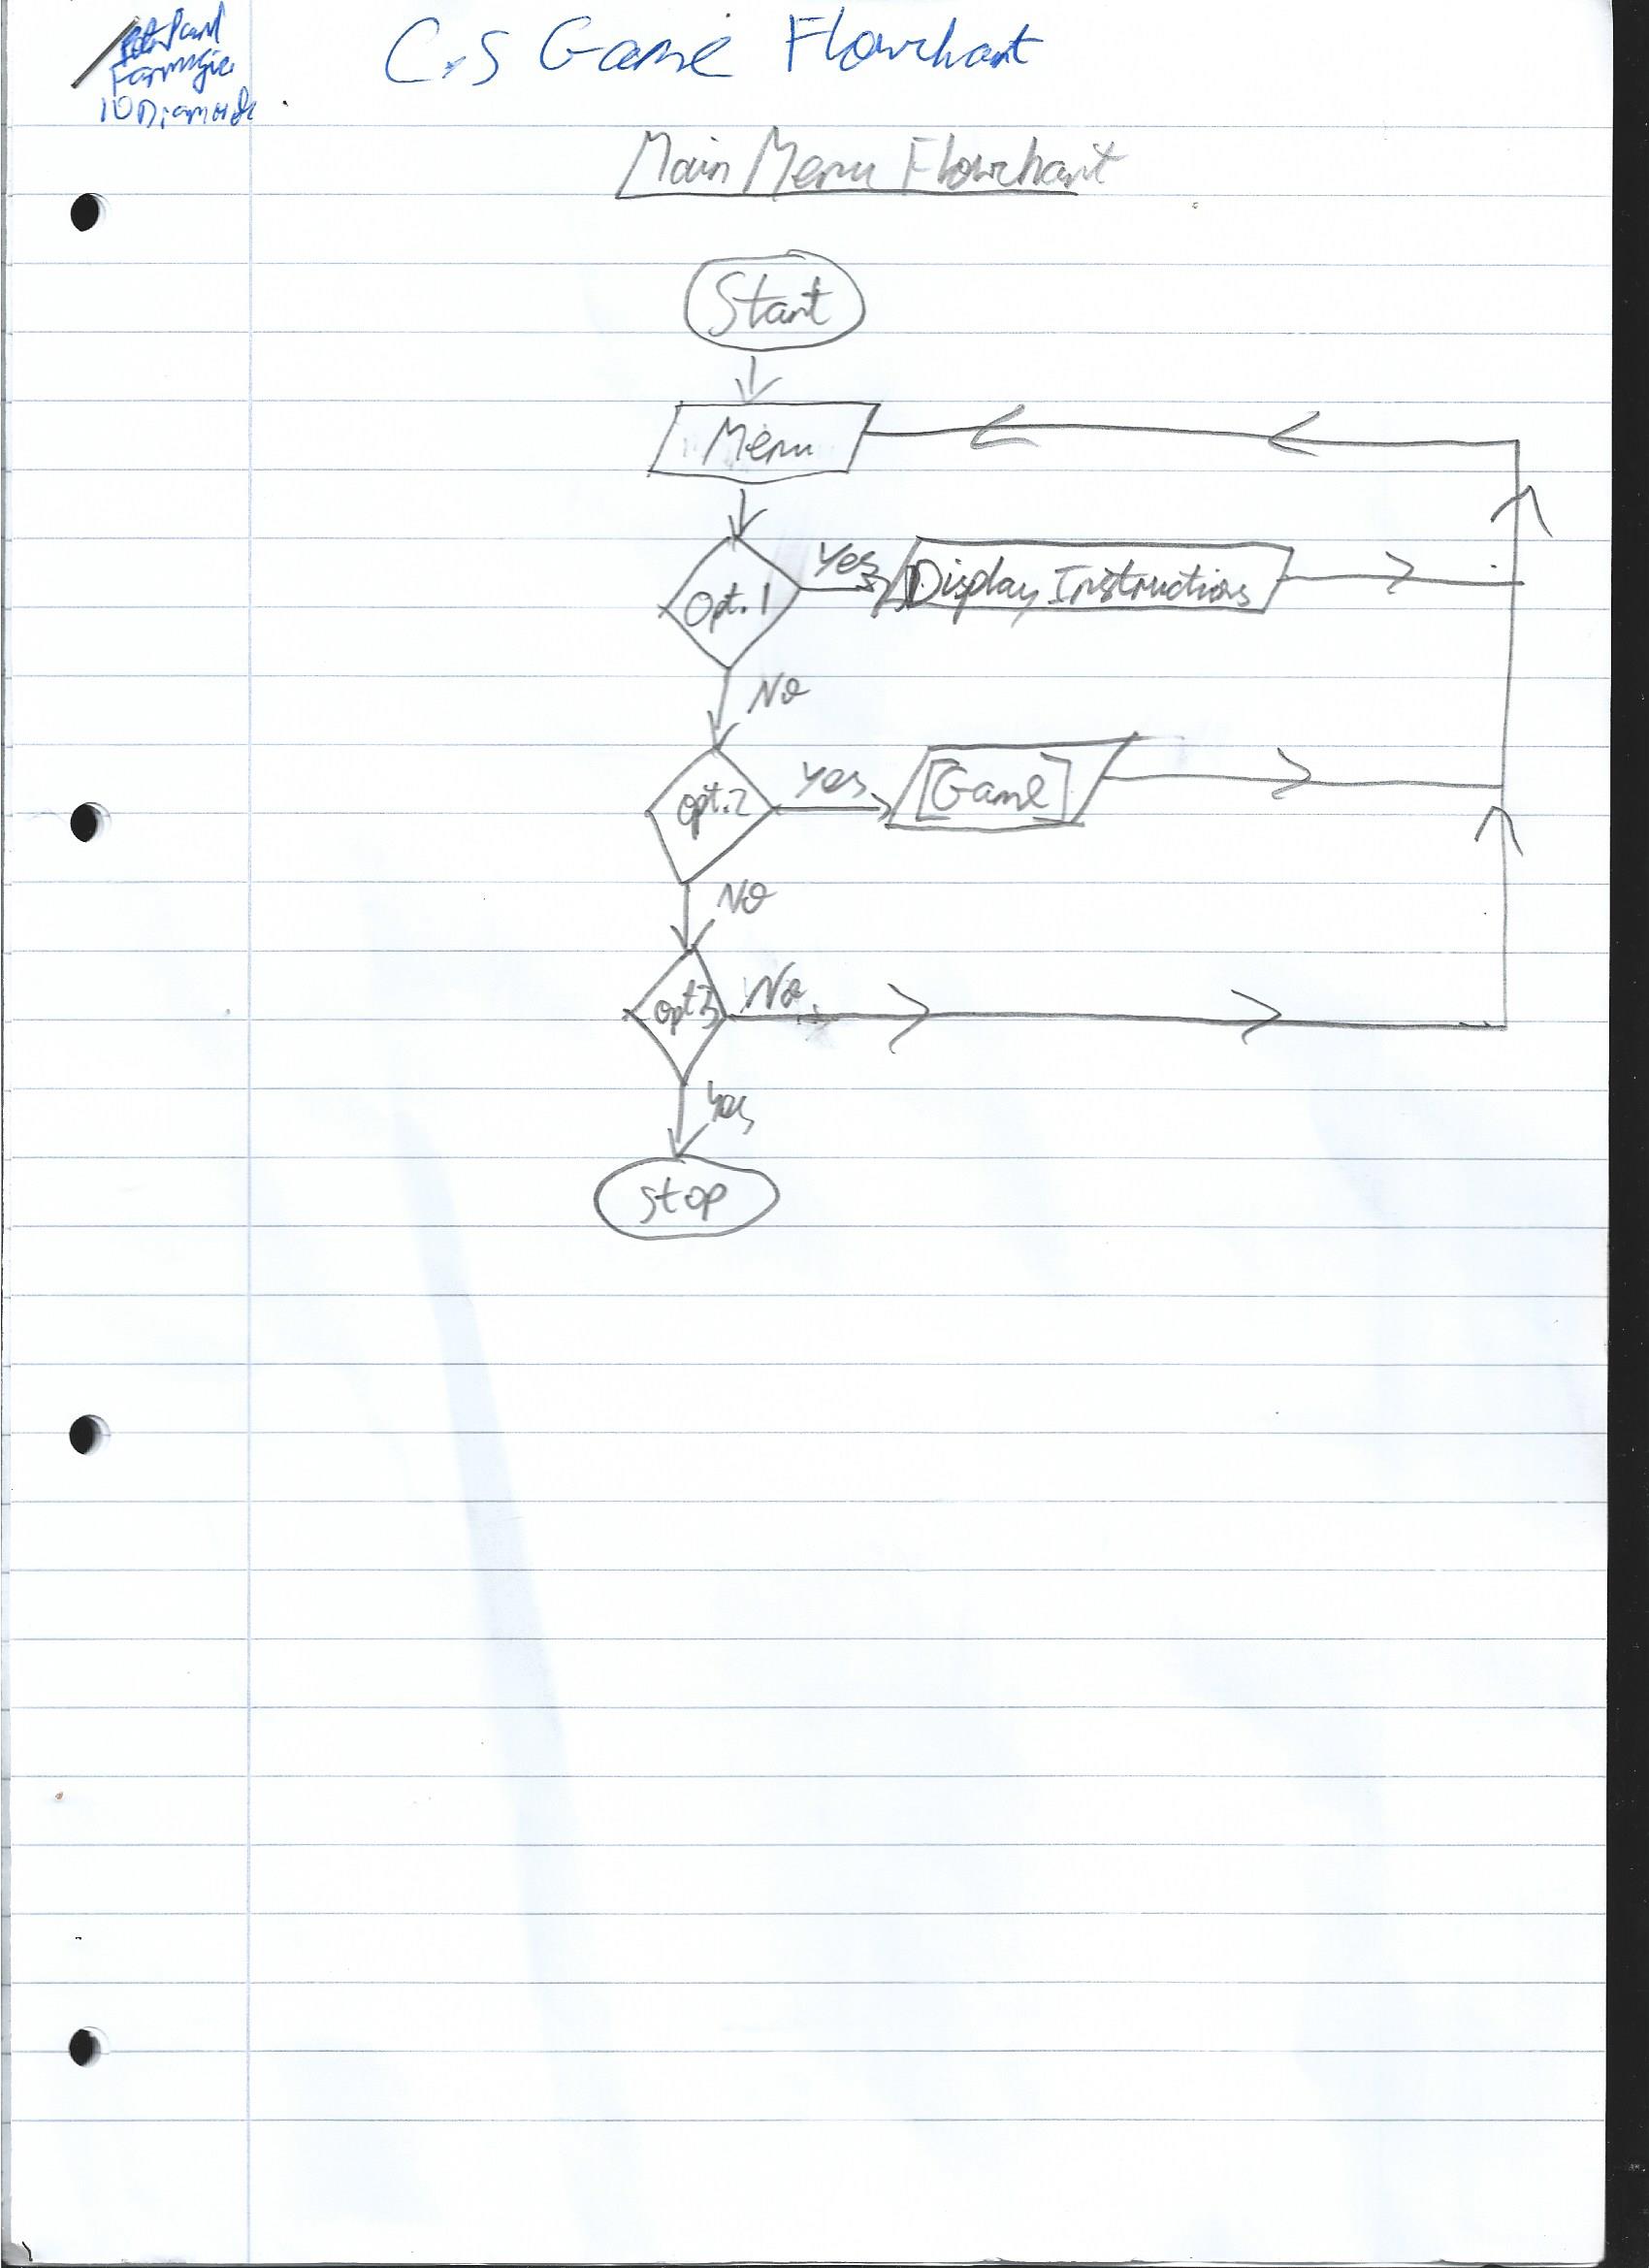 Paul
Farrugia
10 Diamond
C.S Game Flowchart
Main Menu Flowchart
Start
Menu
Opt. 1
Yes
Display Instructions
No
Opt. 2
Yes
[Game]
No
Opt 3
No
Yes
Stop